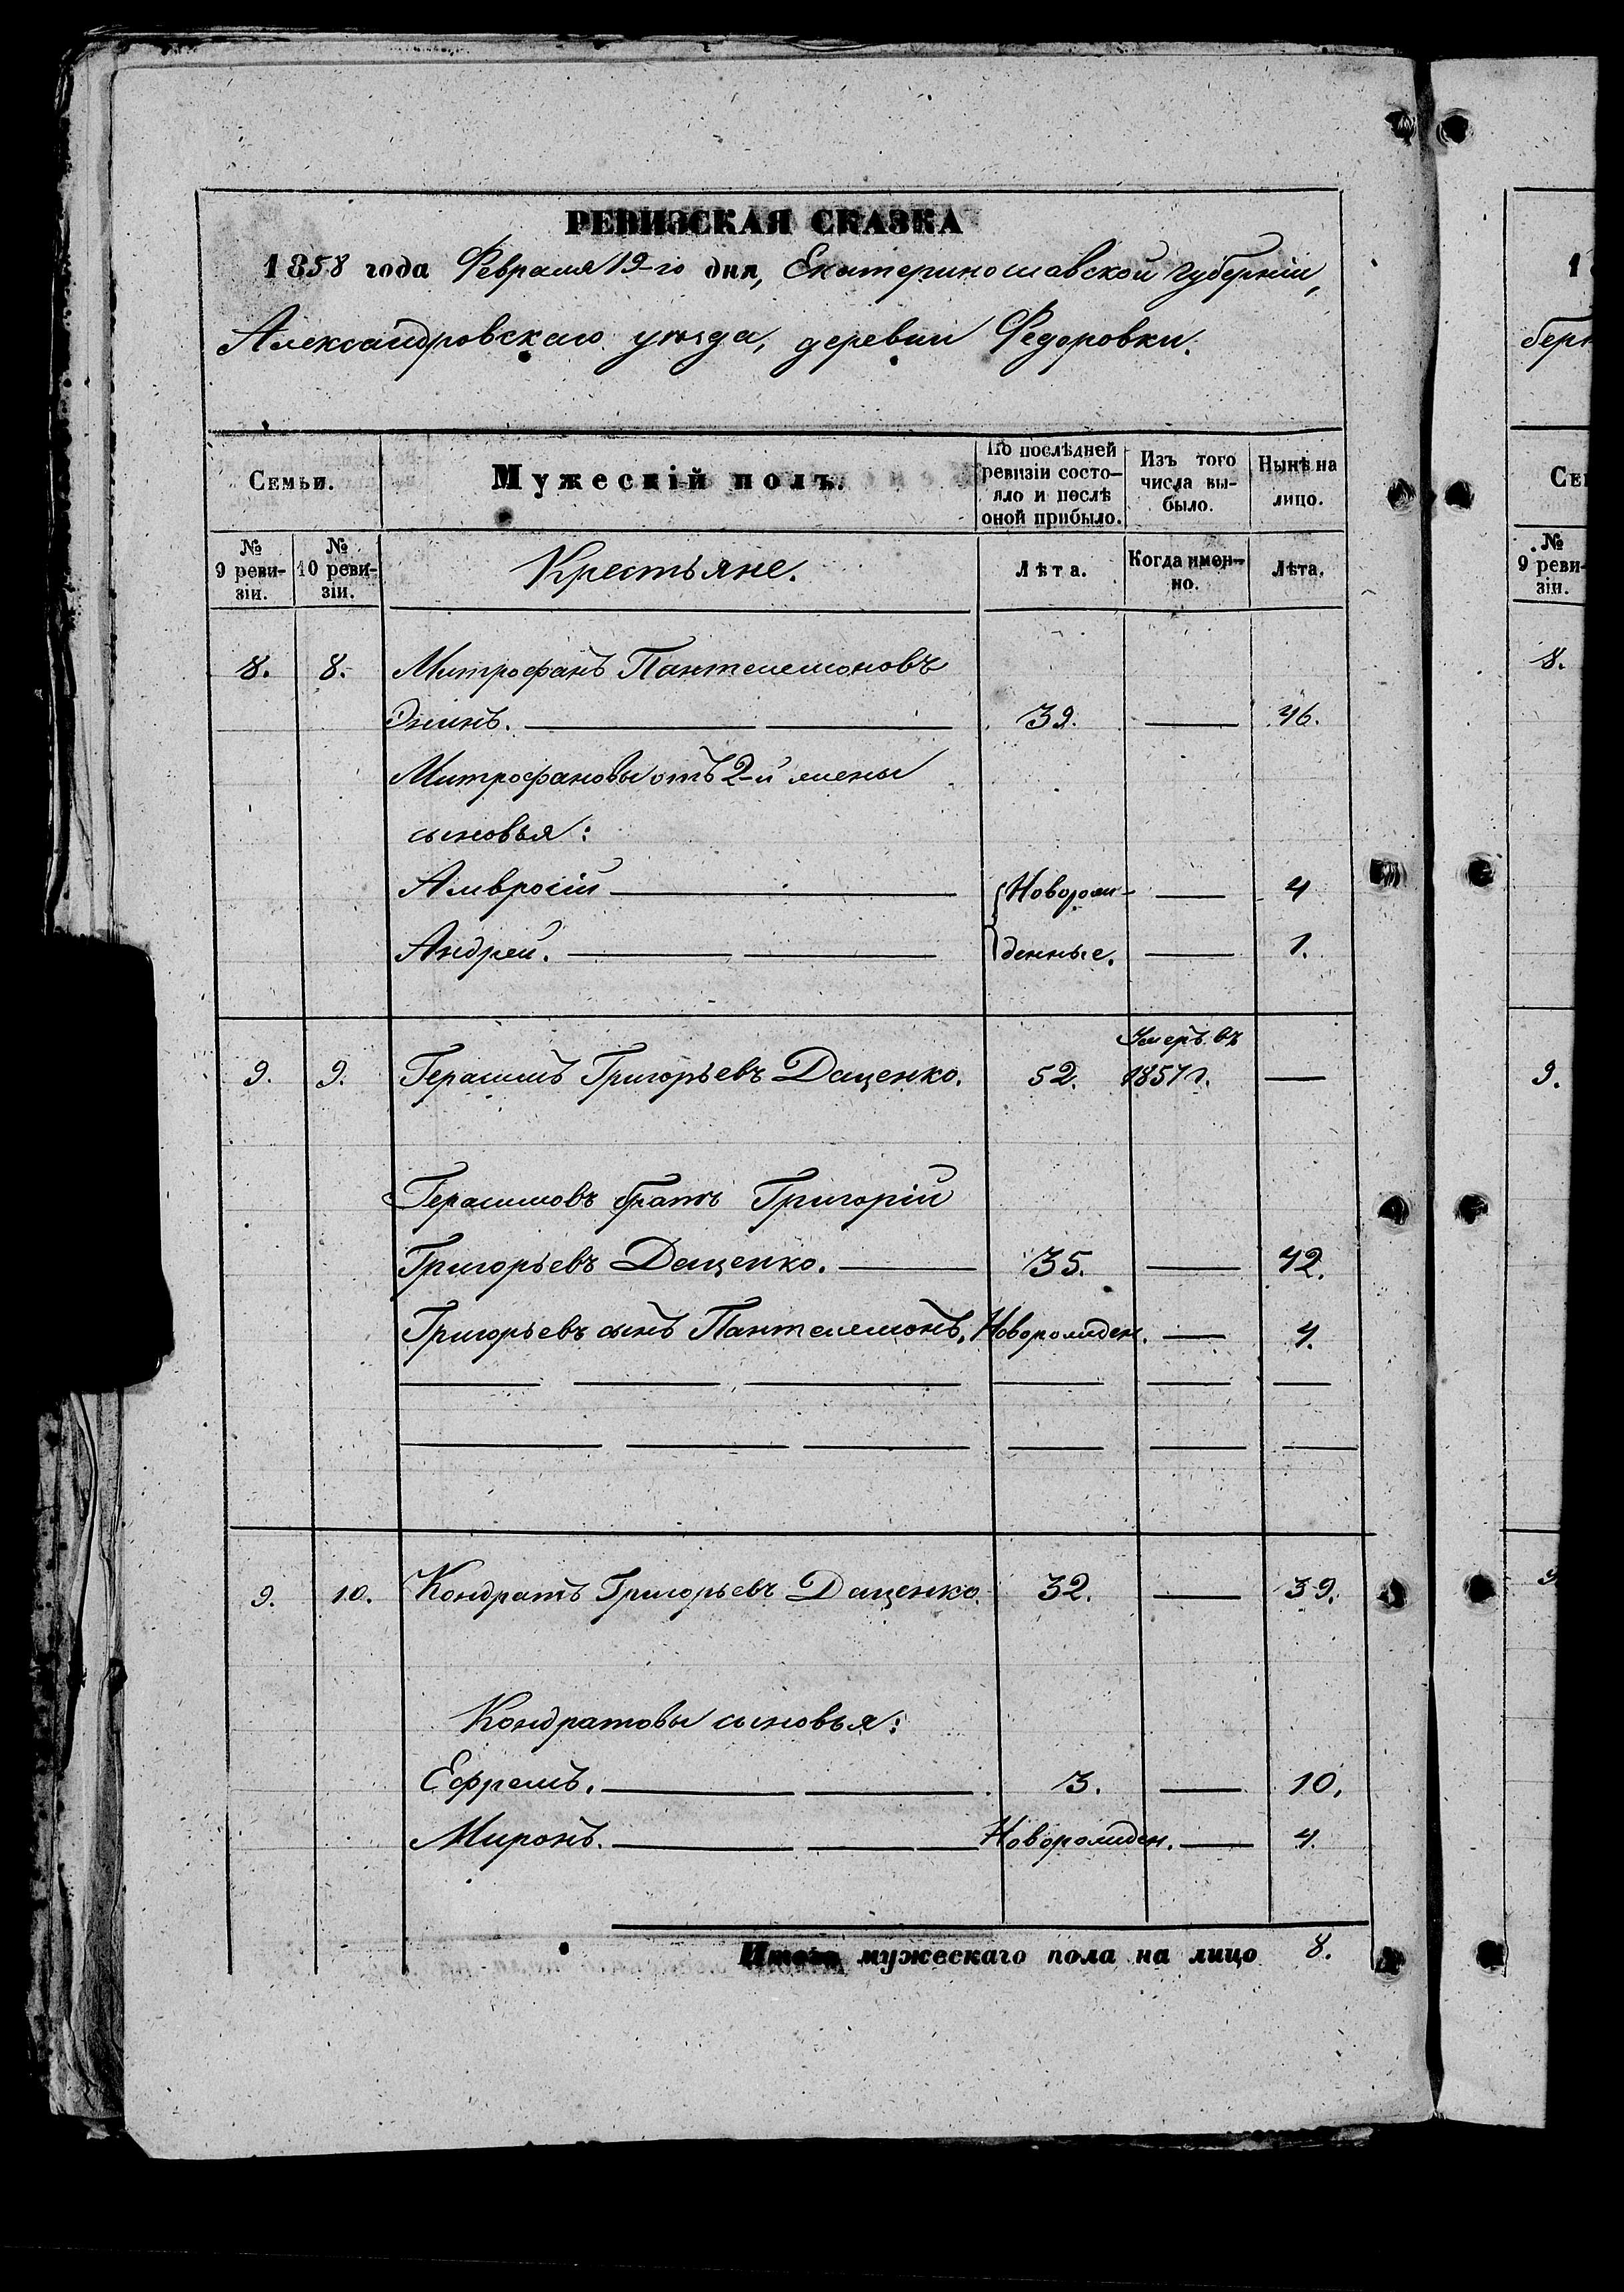 РЕВИЗСКАЯ СКАЗКА
1858 года Февраля 19-го дня, Екатеринославской губерніи,
Александровскаго уѣзда, деревни Федоровки.
Семьи.
Мужескій полъ.
По послѣдней ревизіи состо-
яло и послѣ оной прибыло.
Изъ того числа вы-
было.
Нынѣ на лицо.
№ 9 реви-
зіи.
№ 10 реви-
зіи.
Крестьяне.
Лѣта.
Когда имен-
но.
Лѣта.
8. 8. Митрофанъ Пантелемоновъ
39. — 46.
Митрофановы отъ 2-й жены
сыновья:
Амвросій — Новорож- — 4
Андрей. — денные. — 1.
Умеръ въ
9. 9. Герасимъ Григорьевъ Даценко. 52. 1857 г. —
Герасимовъ братъ Григорій
Григорьевъ Даценко. — 35. — 42.
Григорьевъ сынъ Пантелемонъ. Новорожден. — 4.
9. 10. Кондратъ Григорьевъ Даценко. 32. — 39.
Кондратовы сыновья:
Ефремъ. — 3. — 10.
Миронъ. — Новорожден. — 4.
Итого мужескаго пола на лицо 8.
1
берн
Се
№
9 реви-
зіи.
8.
9.
9